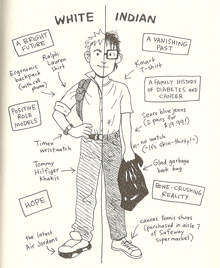 WHITE
INDIAN
A BRIGHT
FUTURE
Ralph
Lauren
shirt
Ergonomic
backpack
(with cell
phone)
POSITIVE
ROLE
MODELS
Timex
wristwatch
Tommy
Hilfiger
Khakis
HOPE
the latest
Air Jordans
A VANISHING
PAST
Kmart
T-shirt
A FAMILY HISTORY
OF
DIABETES AND
CANCER
Sears blue jeans
(2 pairs for
$19.99!)
no watch
("It's skin-thirty!")
Glad garbage
book bag
BONE-CRUSHING
REALITY
canvas tennis shoes
(purchased in aisle 7
of Safeway
supermarket)